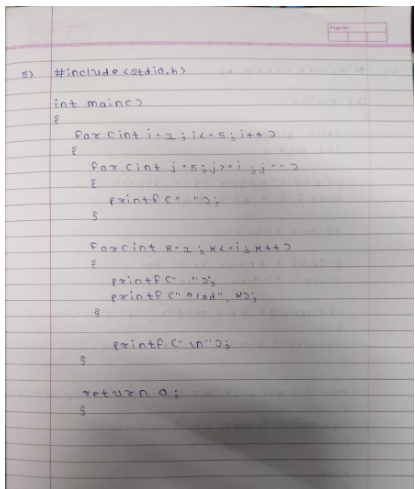 Page No.:
5) #include <stdio.h>
int main()
{
for (int i=1; i<=5; i++)
{
for (int j=5; j>=i; j--)
{
printf (" ");
}
for (int k=1; k<=i; k++)
{
printf (" ");
printf (" %d", k);
}
printf (" \n");
}
return 0;
}